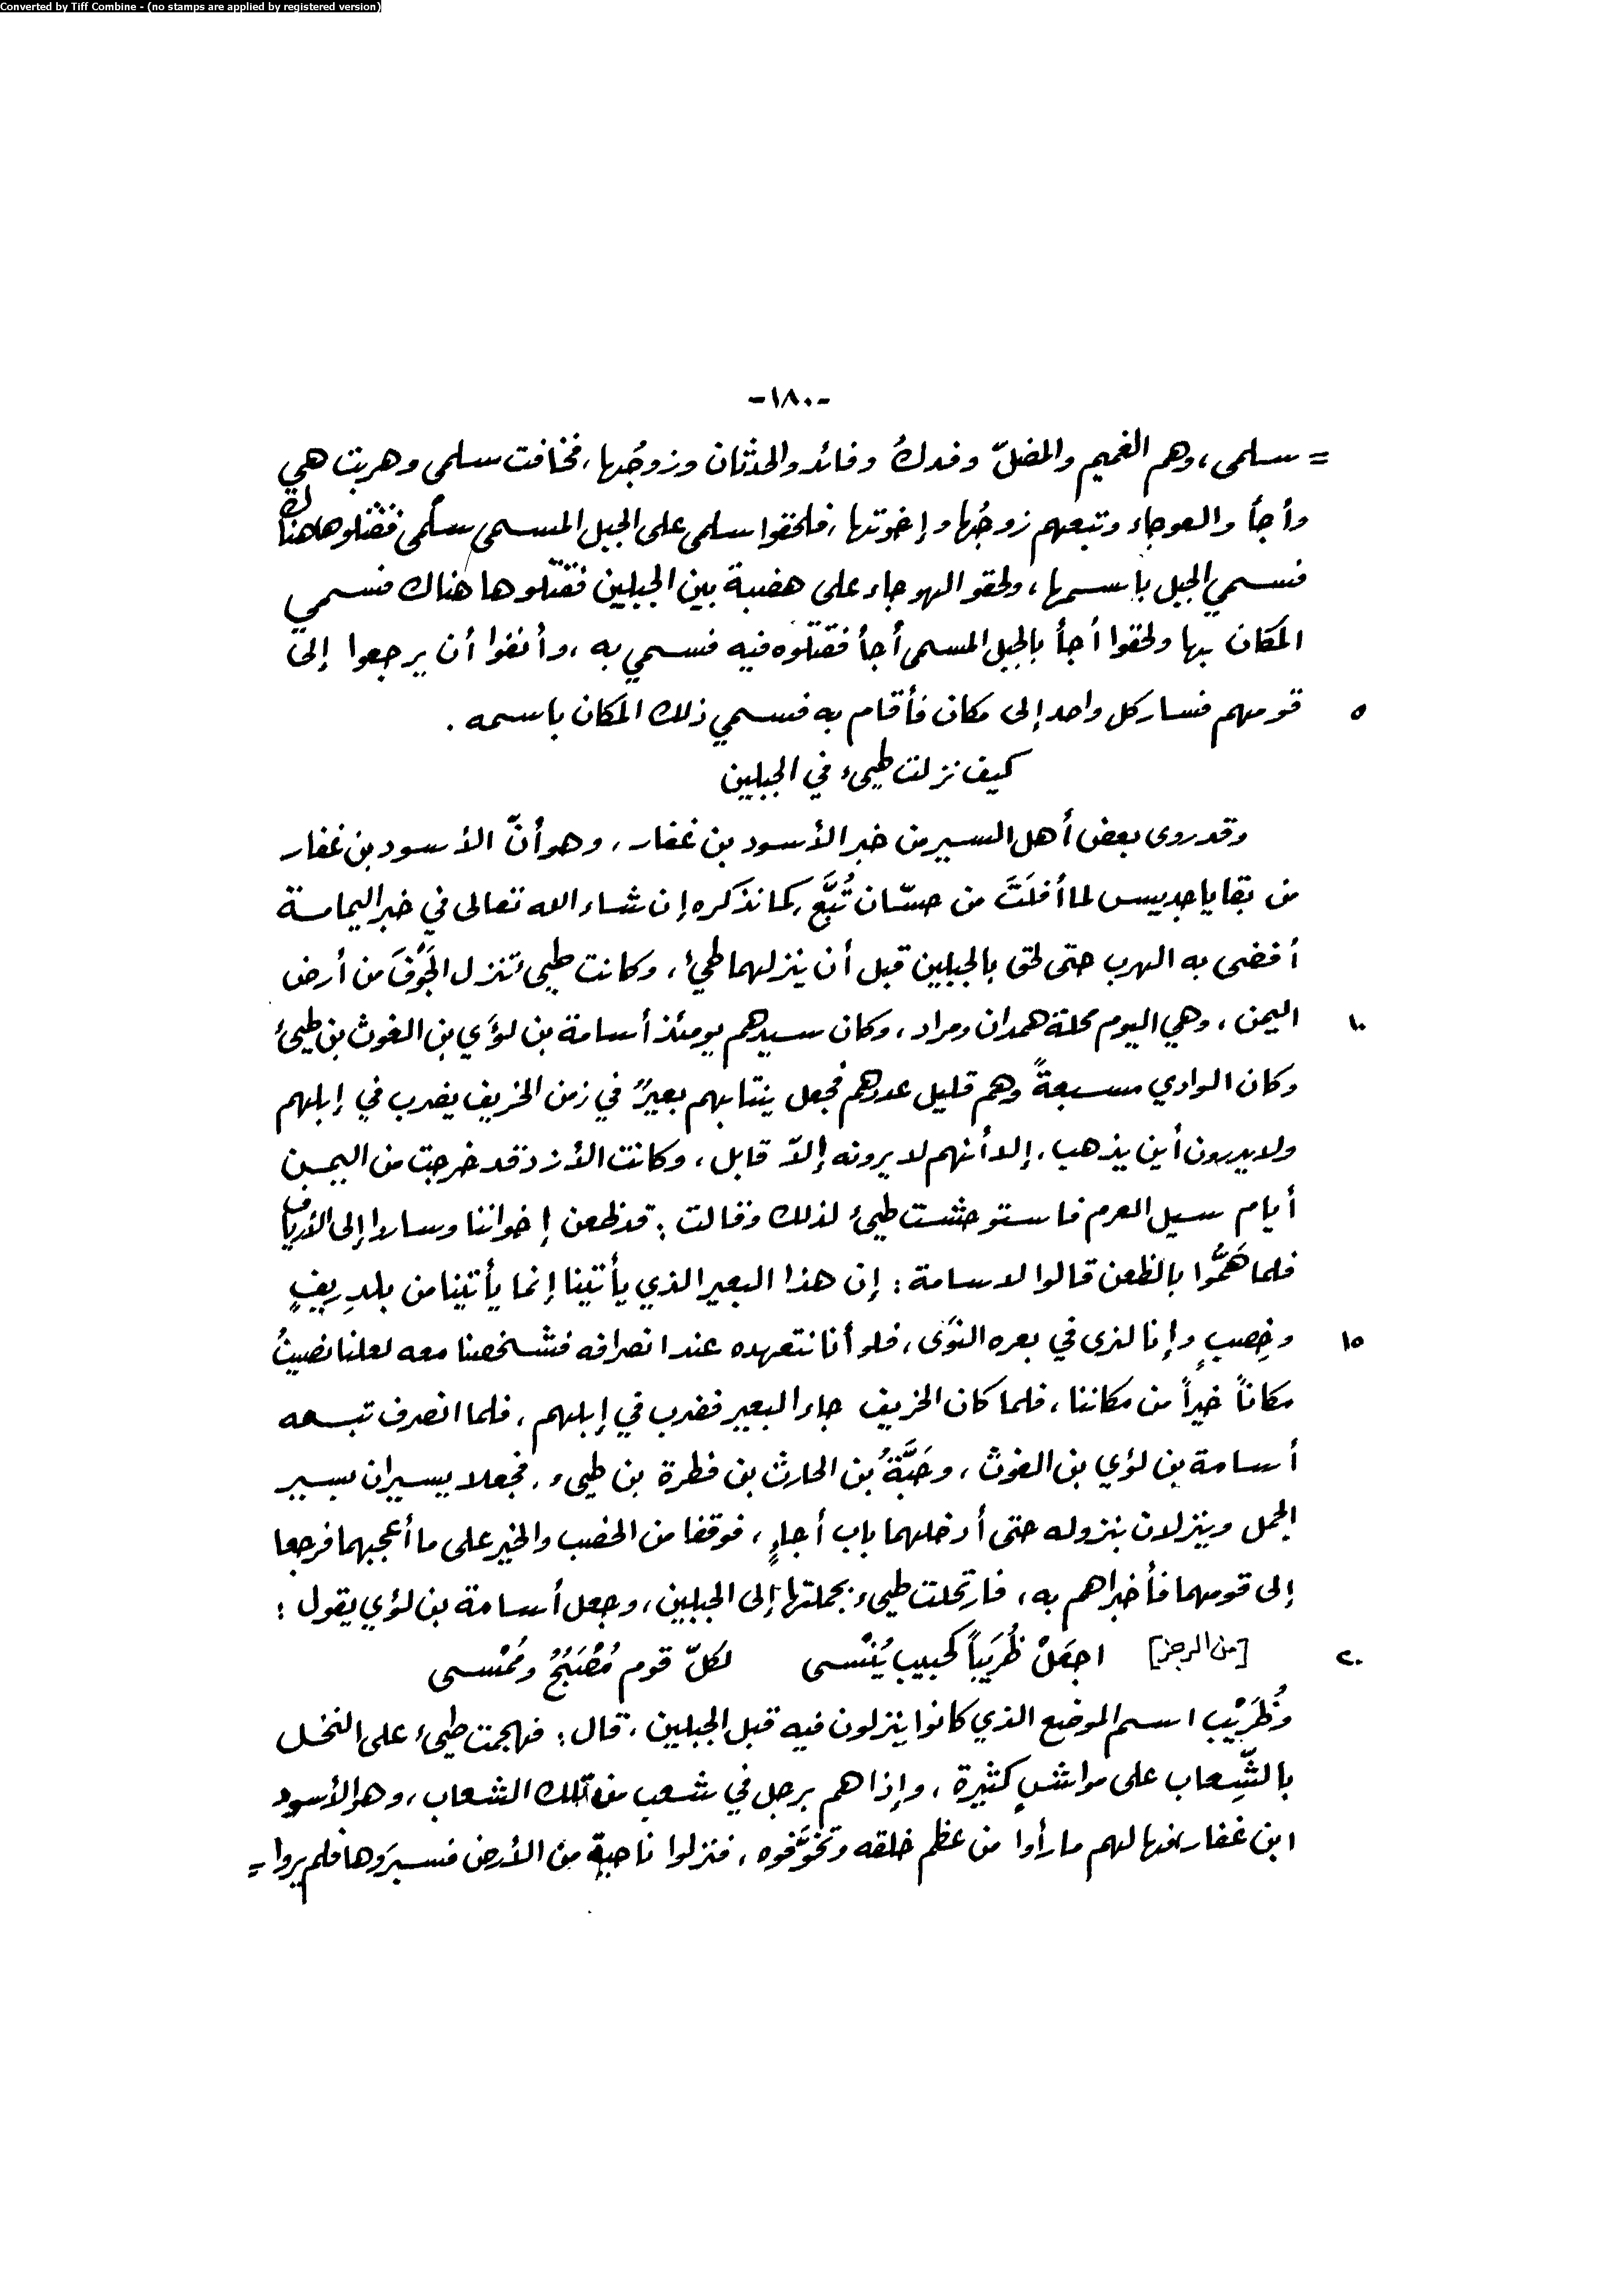 Converted by Tiff Combine - (no stamps are applied by registered version)
-١٨٠-
= سلمى، وهم الغميم والمضلّ وفدك وفائد والحدثان وزوجُها، فخافت سلمى وهربت هي
وأجأ والعوجاء وتبعهم زوجُها وإخوتها، فلحقوا سلمى على الجبل المسمى سلمى فقتلوها هناك
فسمي الجبل باسمها، ولحقو الهوجاء على هضبة بين الجبلين فقتلوها هناك فسمي
المكان بها ولحقوا أجأ بالجبل المسمى أجأ فقتلوه فيه فسمي به، وأنفوا أن يرجعوا إلى
٥ قومهم فسار كل واحد إلى مكان فأقام به فسمي ذلك المكان باسمه .
كيف نزلت طيىء في الجبلين
وقد روى بعض أهل السير من خبر الأسود بن غفار، وهو أنّ الأسود بن غفار
من بقايا جديس لما أفلَتَ من حسّان تُبَّع، كما نذكره إن شاء الله تعالى في خبر اليمامة
أفضى به الهرب حتى لحق بالجبلين قبل أن ينزلهما طيئ، وكانت طيئ تنزل الجَوْفَ من أرض
١٠ اليمن، وهي اليوم محلة همدان ومراد، وكان سيدهم يومئذ أسامة بن لؤي بن الغوث بن طيئ
وكان الوادي مسبعةً وهم قليل عددهم فجعل ينتابهم بعيرٌ في زمن الخريف يضرب في إبلهم
ولا يدرون أين يذهب، إلا أنهم لا يرونه إلاّ قابل، وكانت الأزد قد خرجت من اليمن
أيام سيل العرم فاستوحشت طيئ لذلك وقالت : قد ظعن إخواننا وساروا إلى الأرياف
فلما هَمُّوا بالظعن قالوا لاسامة : إن هذا البعير الذي يأتينا إنما يأتينا من بلدِ ريفٍ
١٥ وخِصبٍ وإنا لنرى في بعره النوَى، فلو أنا نتعهده عند انصرافه فشخصنا معه لعلنا نصيبُ
مكاناً خيراً من مكاننا، فلما كان الخريف جاء البعير فضرب في إبلهم، فلما انصرف تبعه
أسامة بن لؤي بن الغوث، وحَبَّةُ بن الحارث بن فطرة بن طيىء، فجعلا يسيران بسير
الجمل وينزلان بنزوله حتى أدخلهما باب أجاءٍ، فوقفا من الخصب والخير على ما أعجبهما فرجعا
إلى قومهما فأخبراهم به، فارتحلت طيىء بجملتها إلى الجبلين، وجعل أسامة بن لؤي يقول :
٢٠ [من الرجز] اجعَلْ ظُرَيباً كحبيب يُنْسى لكلّ قوم مُصْبَحٌ ومُمْسى
وظُرَيْب اسم الموضع الذي كانوا ينزلون فيه قبل الجبلين، قال : فهجمت طيئ على النخل
بالشِّعاب على مواشٍ كثيرة، وإذا هم برجل في شعب من تلك الشعاب، وهو الأسود
ابن غفار، فهالهم ما رأوا من عظم خلقه وتخوَّفوه، فنزلوا ناحية من الأرض فسبرَوها فلم يروا =